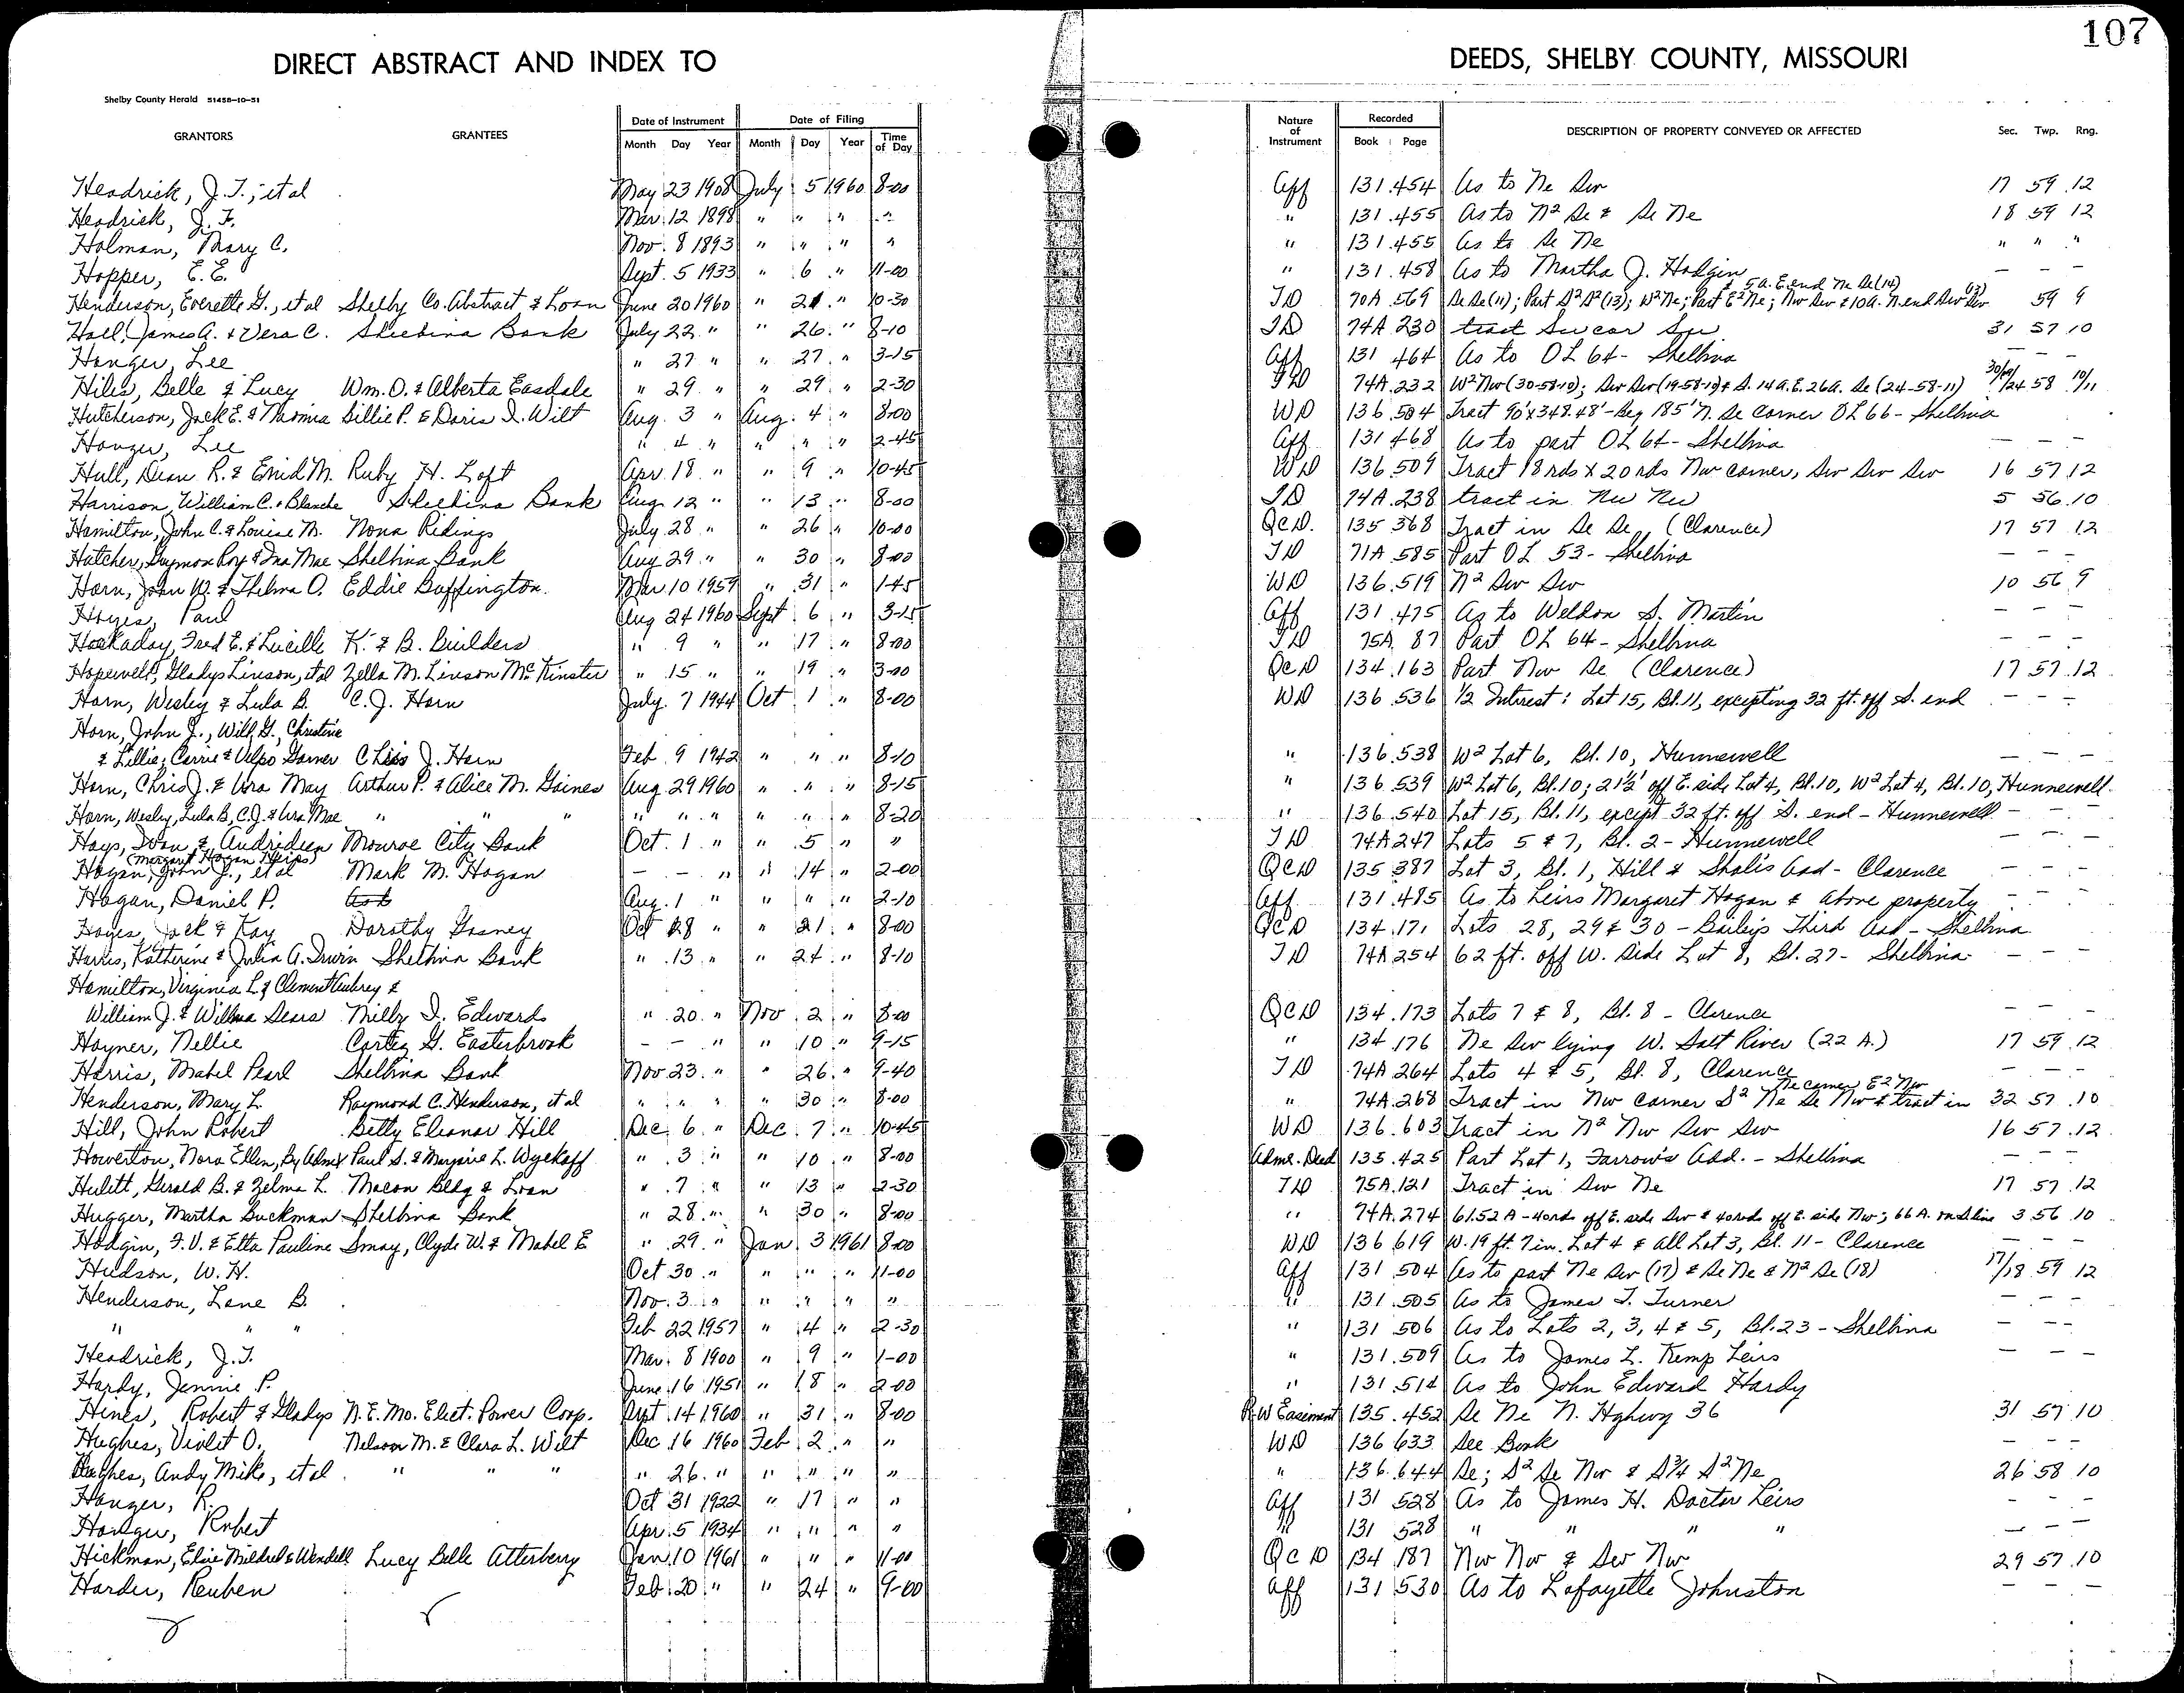 107
DIRECT ABSTRACT AND INDEX TO DEEDS, SHELBY COUNTY, MISSOURI
Shelby County Herald 51458-10-51
GRANTORS GRANTEES Date of Instrument Date of Filing Nature of Instrument Recorded DESCRIPTION OF PROPERTY CONVEYED OR AFFECTED Sec. Twp. Rng.
Month Day Year Month Day Year Time of Day Book Page
Headrick, J.T.; et al May 23 1908 July 5 1960 8-00 Aff 131 454 As to Ne Sw 17 59 12
Headrick, J.F. Mar. 12 1898 " " " " " 131 455 As to N2 Se & Se Ne 18 59 12
Holman, Mary C. Nov. 8 1893 " " " " " 131 455 As to Se Ne " " "
Hopper, E.E. Sept. 5 1933 " 6 " 11-00 " 131 458 As to Martha J. Hodgin — — —
& 5a. E. end Ne Se (14)
Henderson, Everette G., et al Shelby Co. Abstract & Loan June 20 1960 " 21 " 10-30 TD 70A 569 Se Se (11); Part S2 S2 (13); W2 Ne; Part E2 Ne; Nw Sw & 10a. N. end Sw Sw 59 9
Hall, James A. & Vera C. Shelbina Bank July 22 " " 26 " 8-10 TD 74A 230 tract Sw cor Sw 31 57 10
Hanger, Lee " 27 " " 27 " 3-15 Aff 131 464 As to OL 64 - Shelbina — — —
Hiles, Belle & Lucy Wm. O. & Alberta Easdale " 29 " " 29 " 2-30 TD 74A 232 W2 Nw (30-58-10); Sw Sw (19-58-10) & S. 14a. E. 26a. Se (24-58-11) 30/19/24 58 10/11
Hutcherson, Jack E. & Naomia Billie P. & Doris I. Wilt Aug. 3 " Aug. 4 " 8-00 WD 136 504 Tract 90' x 348.48' - Beg 185' N. Se corner OL 66 - Shelbina
Hanger, Lee " 4 " " " " 2-45 Aff 131 468 As to part OL 64 - Shelbina — — —
Hull, Dean R. & Enid M. Ruby H. Loft Apr. 18 " " 9 " 10-45 WD 136 509 Tract 18 rds x 20 rds Nw corner, Sw Sw Sw 16 57 12
Harrison, William C. & Blanche Shelbina Bank Aug. 12 " " 13 " 8-00 TD 74A 238 tract in Nw Nw 5 56 10
Hamilton, John C. & Louise M. Nona Ridings July 28 " " 26 " 10-00 QCD. 135 368 Tract in Se Se (Clarence) 17 57 12
Hutcher, Guymon Roy & Ina Mae Shelbina Bank Aug 29 " " 30 " 8-00 TD 71A 585 Part OL 53 - Shelbina — — —
Horn, John W. & Thelma O. Eddie Buffington. Mar 10 1959 " 31 " 1-45 WD 136 519 N2 Sw Sw 10 56 9
Hayes, Paul Aug 24 1960 Sept 6 " 3-15 Aff 131 475 As to Weldon S. Martin — — —
Hockaday, Fred E. & Lucille K. & B. Builders " 9 " " 17 " 8-00 TD 75A 87 Part OL 64 - Shelbina — — —
Hopewell, Gladys Linson, et al Zella M. Linson McKinster " 15 " " 19 " 3-00 QCD 134 163 Part Nw Se (Clarence) 17 57 12
Horn, Wesley & Lula B. C.J. Horn July. 7 1944 Oct 1 " 8-00 WD 136 536 1/2 Interest: Lot 15, Bl. 11, excepting 32 ft. off S. end — — —
Horn, John J., Will G., Christine
& Lillie; Carrie & Velpo Garner Chris J. Horn Feb 9 1942 " " " 8-10 " 136 538 W2 Lot 6, Bl. 10, Hunnewell — —
Horn, Chris J. & Ura May Arthur P. & Alice M. Gaines Aug. 29 1960 " " " 8-15 " 136 539 W2 Lot 6, Bl. 10; 21½' off E. side Lot 4, Bl. 10, W2 Lot 4, Bl. 10, Hunnewell
Horn, Wesley, Lula B, C.J. & Ura Mae " " " " " " " " " 8-20 " 136 540 Lot 15, Bl. 11, except 32 ft. off S. end - Hunnewell — — —
Hays, Ivan & Audridien Monroe City Bank Oct. 1 " " 5 " " TD 74A 247 Lots 5 & 7, Bl. 2 - Hunnewell — — —
(Margaret Hogan Heirs)
Hogan, John J., et al Mark M. Hogan — — " " 14 " 2-00 QCD 135 387 Lot 3, Bl. 1, Hill & Shalis Add - Clarence — — —
Hogan, Daniel P. Aug. 1 " " " " 2-10 Aff 131 485 As to Heirs Margaret Hogan & above property — — —
Hayes, Jack & Kay Dorothy Gosney Oct 28 " " 21 " 8-00 QCD 134 171 Lots 28, 29 & 30 - Bailey's Third Add - Shelbina
Harris, Katherine & Julia A. Irwin Shelbina Bank " 13 " " 24 " 8-10 TD 74A 254 62 ft. off W. side Lot 8, Bl. 27 - Shelbina — — —
Hamilton, Virginia L. & Clement Aubrey &
William J. & Willma Sears Milly I. Edwards " 20 " Nov 2 " 8-00 QCD 134 173 Lots 7 & 8, Bl. 8 - Clarence — —
Hayner, Nellie Cortez G. Easterbrook — — " " 10 " 9-15 " 134 176 Ne Sw lying W. Salt River (22 A.) 17 59 12
Harris, Mabel Pearl Shelbina Bank Nov 23 " " 26 " 9-40 TD 74A 264 Lots 4 & 5, Bl. 8, Clarence — — —
Ne corner E2 Nw
Henderson, Mary L. Raymond C. Henderson, et al " " " " 30 " 8-00 " 74A 268 Tract in Nw corner S2 Ne Se Nw & tract in 32 57 10
Hill, John Robert Betty Eleanor Hill Dec. 6 " Dec. 7 " 10-45 WD 136 603 Tract in N2 Nw Sw Sw 16 57 12
Howerton, Nora Ellen, By Admx Paul S. & Margarie L. Wyckoff " 3 " " 10 " 8-00 Adms. Deed 135 425 Part Lot 1, Farrow's Add. - Shelbina — — —
Hulitt, Gerald B. & Zelma L. Macon Bldg & Loan " 7 " " 13 " 2-30 TD 75A 121 Tract in Sw Ne 17 57 12
Hugger, Martha Buckman Shelbina Bank " 28 " " 30 " 8-00 " 74A 274 61.52 A - 40rds off E. side Sw & 40rods off E. side Nw; 66 A. on S line 3 56 10
Hodgin, F.V. & Etta Pauline Smay, Clyde W. & Mabel E " 29 " Jan. 3 1961 8-00 WD 136 619 W. 19 ft. 7 in. Lot 4 & all Lot 3, Bl. 11 - Clarence — — —
Hudson, W.H. Oct 30 " " " " 11-00 Aff 131 504 As to part Ne Sw (17) & Se Ne & N2 Se (18) 17/18 59 12
Henderson, Lane B. Nov. 3 " " " " " " 131 505 As to James T. Turner — — —
" " " Feb 22 1957 " 4 " 2-30 " 131 506 As to Lots 2, 3, 4 & 5, Bl. 23 - Shelbina — — —
Headrick, J.T. Mar. 8 1900 " 9 " 1-00 " 131 509 As to James L. Kemp Heirs — — —
Hardy, Jennie P. June 16 1951 " 18 " 2-00 " 131 514 As to John Edward Hardy
Hines, Robert & Gladys N.E. Mo. Elect. Power Coop. Sept. 14 1960 " 31 " 8-00 R-W Easement 135 452 Se Ne N. Hghwy 36 31 57 10
Hughes, Violet O. Nelson M. & Clara L. Wilt Dec 16 1960 Feb 2 " " WD 136 633 See Book — — —
Hughes, Andy Mike, et al " " " " 26 " " " " " " 136 644 Se; S2 Se Nw & S¾ S2 Ne 26 58 10
Hanger, R. Oct 31 1922 " 17 " " Aff 131 528 As to James H. Doctor Heirs — — —
Hanger, Robert Apr. 5 1934 " " " " " 131 528 " " " " — — —
Hickman, Elsie Mildred & Wendell Lucy Belle Atterberry Jan. 10 1961 " " " 11-00 QCD 134 187 Nw Nw & Sw Nw 29 57 10
Harder, Reuben Feb. 20 " " 24 " 9-00 Aff 131 530 As to Lafayette Johnston — — —